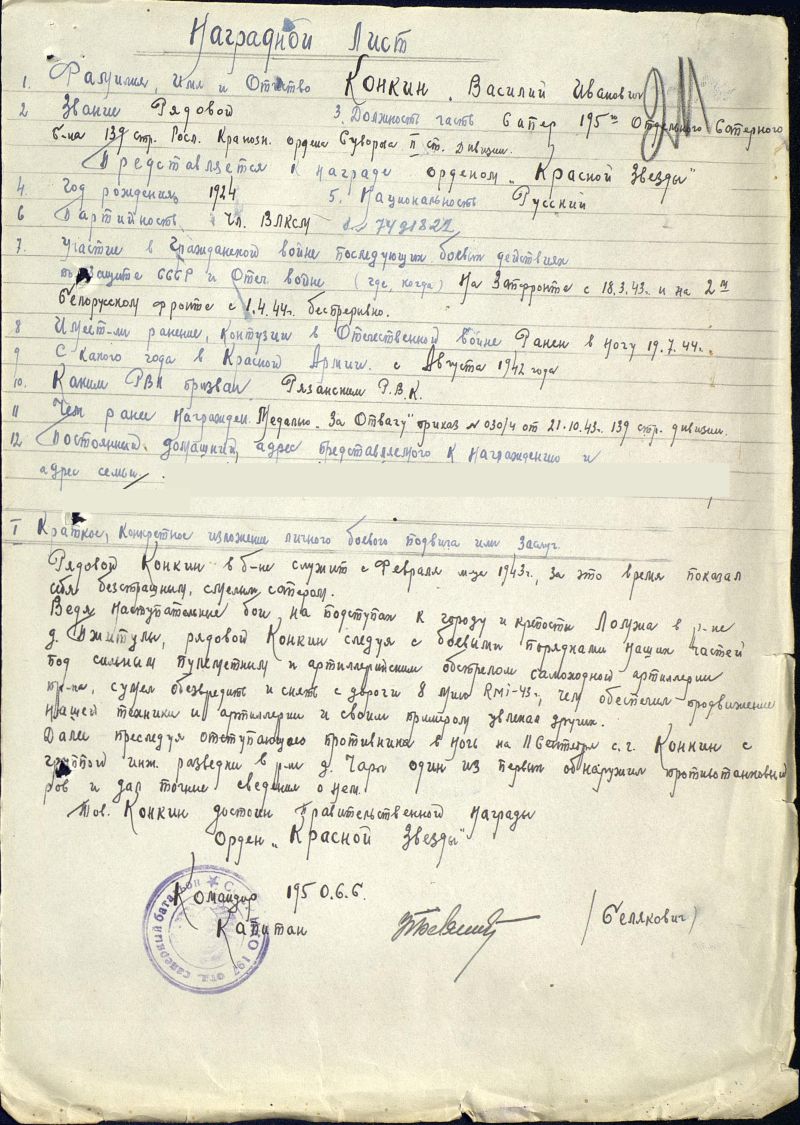 Наградной Лист
1. Фамилия, Имя и Отчество Конкин Василий Иванович
2 Звание Рядовой 3. Должность часть Сапер 195го Отдельного Саперного
б-на 139 стр. Росл. Краснозн. ордена Суворова II ст. Дивизии.
Представляется к награде орденом „Красной Звезды"
4. Год рождения 1924 5. Национальность Русский
6 Партийность Чл. ВЛКСМ
7. Участие в Гражданской войне последующих боевых действиях
по защите СССР и Отеч. войне (где, когда) На Запфронте с 18.3.43г. и на 2м
Белорусском фронте с 1.4.44г. беспрерывно.
8 Имеет-ли ранение, контузии в Отечественной войне Ранен в ногу 19.7.44г.
9 С какого года в Красной Армии. с Августа 1942 года
10. Каким РВК призван Рязанским Р.В.К.
11 Чем ранее награжден. Медалью „За Отвагу" приказ № 030/ч от 21.10.43г. 139 стр. дивизии.
12 Постоянный домашний, адрес представляемого к награждению и
адрес семьи
I Краткое, конкретное изложение личного боевого подвига или заслуг.
Рядовой Конкин в б-не служит с Февраля м-ца 1943г., за это время показал
себя бесстрашным, смелым сапером.
Ведя наступательные бои, на подступах к городу и крепости Ломжа в р-не
д. рядовой Конкин следуя с боевыми порядками наших частей
под сильным пулеметным и артиллерийским обстрелом самоходной артиллерии
пр-ка, сумел обезвредить и снять с дороги 8 мин RMi-43г, чем обеспечил продвижение
нашей техники и артиллерии и своим примером увлекал других.
Далее преследуя отступающего противника в ночь на 11 Сентября с.г. Конкин с
группой инж. разведки в р-не д. Чары один из первых обнаружил противотанковый
ров и дал точные сведения о нем.
Тов. Конкин достоин Правительственной Награды
Орден „Красной Звезды"
Командир 195 О.С.Б.
Капитан (Белякович)
отд. саперный батальон